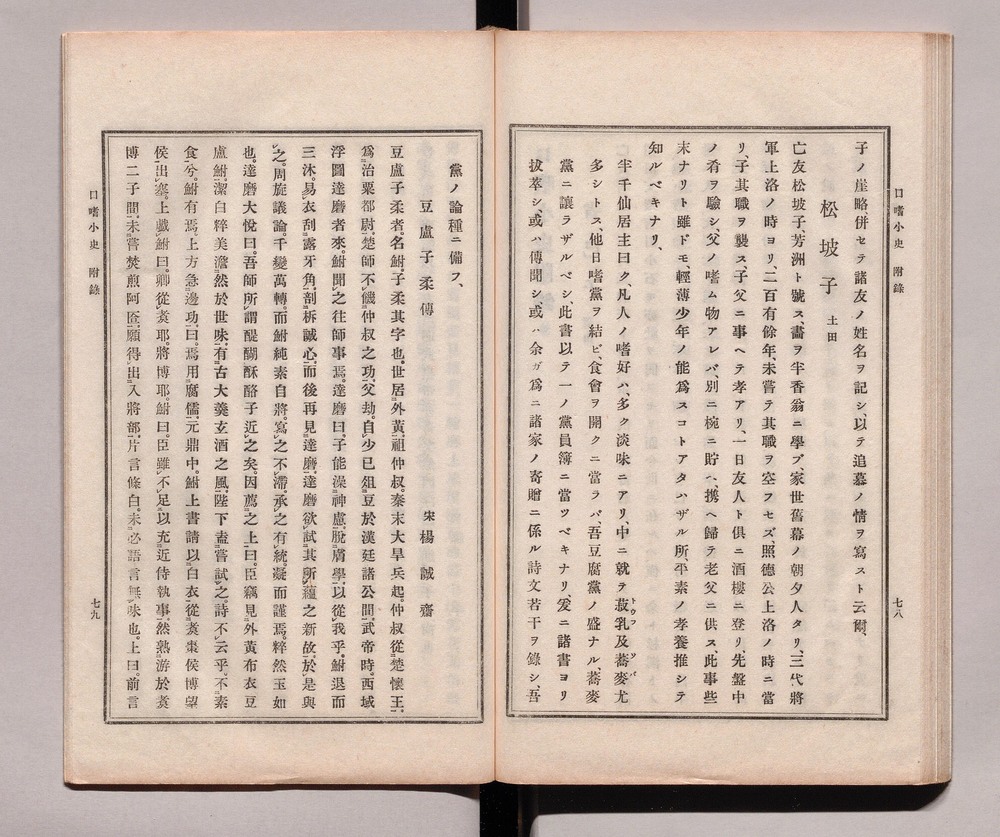 口嗜小史　附錄
七八
子ノ崖略併セテ諸友ノ姓名ヲ記シ、以テ追慕ノ情ヲ寫スト云爾、
松坡子　土田
亡友松坡子、芳洲ト號ス、畵ヲ半香翁ニ學ブ、家世舊幕ノ朝夕人タリ、三代將
軍上洛ノ時ヨリ、二百有餘年、未嘗テ其職ヲ空フセズ、照德公上洛ノ時ニ當
リ、子其職ヲ襲ス、子父ニ事ヘテ孝アリ、一日友人ト俱ニ酒樓ニ登リ、先盤中
ノ肴ヲ驗シ、父ノ嗜ム物アレバ、別ニ椀ニ貯ヘ、携ヘ歸テ老父ニ供ス、此事些
末ナリト雖ドモ、輕薄少年ノ能爲スコトアタハザル所、平素ノ孝養推シテ
知ルベキナリ、
半千仙居主曰ク、凡人ノ嗜好ハ、多ク淡味ニアリ、中ニ就テ菽乳トウフ及蕎麥ソバ尤
多シトス、他日嗜黨ヲ結ビ、食會ヲ開クニ當ラバ、吾豆腐黨ノ盛ナル、蕎麥
黨ニ讓ラザルベシ、此書以テ一ノ黨員簿ニ當ツベキナリ、爰ニ諸書ヨリ
拔萃シ、或ハ傳聞シ、或ハ余ガ爲ニ諸家ノ寄贈ニ係ル詩文若干ヲ錄シ、吾
黨ノ論種ニ備フ、
豆盧子柔傳　宋　楊誠齋
豆盧子柔者。名鮒。子柔其字也。世居外黃。祖仲叔秦末大旱兵起。仲叔從楚懷王。
爲治粟都尉。楚師不饑仲叔之功。父劫。自少已俎豆於漢廷諸公間。武帝時。西域
浮圖達磨者來。鮒聞之往師事焉。達磨曰。子能澡神慮。脫膚學。以從我乎。鮒退而
三沐。易衣刮露牙角。剖析誠心。而後再見達磨。達磨欲試其所蘊之新故。於是與
之。周旋議論。千變萬轉。而鮒純素自將。寫之不滯。承之有統。凝而謹焉。粹然玉如
也。達磨大悅曰。吾師所謂醍醐酥酪子近之矣。因薦之上曰。臣竊見外黃布衣豆
盧鮒。潔白粹美。澹然於世味。有古大羹玄酒之風。陛下盍嘗試之。詩不云乎。不素
食兮。鮒有焉。上方急邊功。曰。焉用腐儒。元鼎中。鮒上書請以白衣從煑棗侯博望
侯出塞。上戲鮒曰。卿從煑耶。將博耶。鮒曰。臣雖不足以充近侍執事。然熟游於煑
博二子間。未嘗焚煎阿匼。願得出入將部。片言條白。未必語言無味也。上曰。前言
口嗜小史　附錄
七九